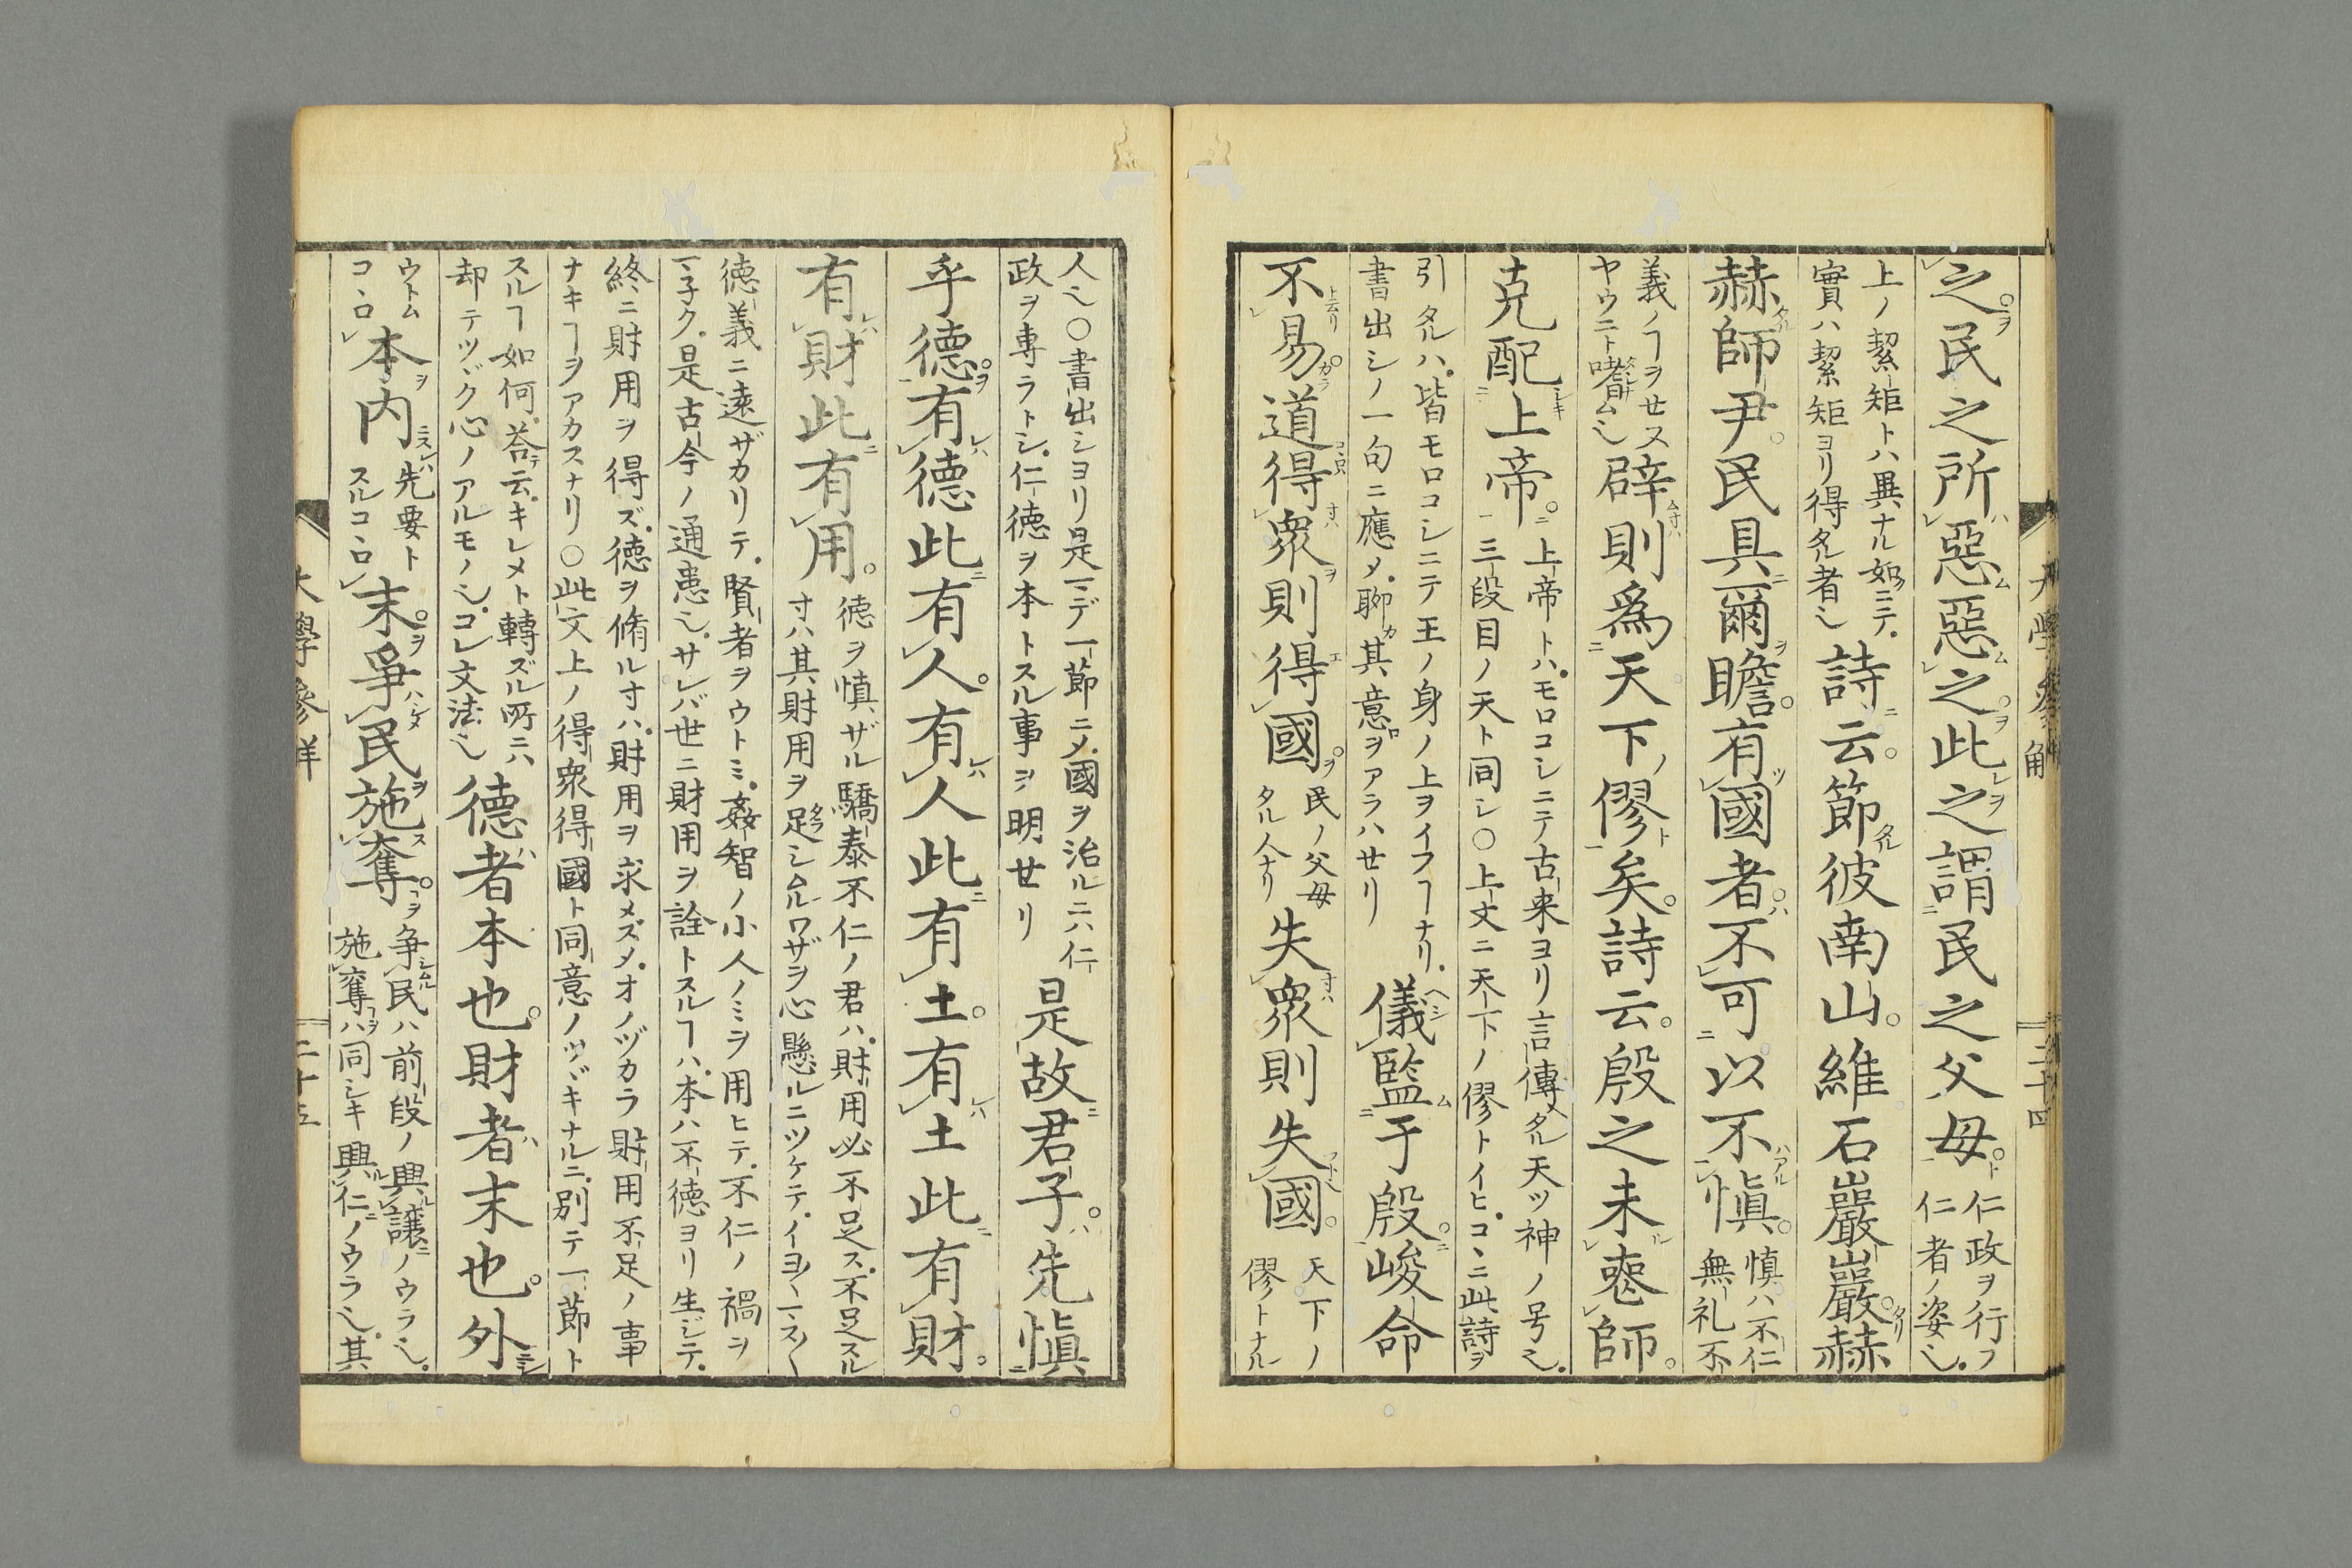 之民之所惡惡之此之謂民之父母 仁政ヲ行フ
仁者ノ姿也
上ノ絜矩トハ異ナル如ニテ
實ハ絜矩ヨリ得タル者也 詩云節彼南山維石巖巖赫
赫師尹民具爾瞻有國者不可以不愼 慎ハ不仁
無礼不
義ノヿヲセス
ヤウニト嗜ム也 辟則爲天下僇矣詩云殷之未喪師
克配上帝 上帝トハモロコシニテ古来ヨリ言傳タル天ツ神ノ号也
三段目ノ天ト同シ〇上文ニ天下ノ僇トイヒコヽニ此詩ヲ
引タルハ皆モロコシニテ王ノ身ノ上ヲイフヿナリ
書出シノ一句ニ應メ聊カ其意ヲアラハセリ 儀監于殷峻命
不易道得衆則得國 民ノ父母
タル人ナリ 失衆則失國 天下ノ
僇トナル
大學參解
二十四
人也〇書出シヨリ是マデ一節ニメ國ヲ治ルニハ仁
政ヲ専ラトシ仁徳ヲ本トスル事ヲ明セリ 是故君子先愼
乎德有德此有人有人此有土有土此有財
有財此有用 徳ヲ慎ザル驕泰不仁ノ君ハ財用必不足ス不足スル
寸ハ其財用ヲ足シムルワザヲ心懸ルニツケテイヨ〱マス〱
徳義ニ遠ザカリテ賢者ヲウトミ姦智ノ小人ノミヲ用ヒテ不仁ノ禍ヲ
マネク是古今ノ通患也サレバ世ニ財用ヲ詮トスルヿハ本ハ不徳ヨリ生ジテ
終ニ財用ヲ得ズ徳ヲ脩ル寸ハ財用ヲ求メズメオノヅカラ財用不足ノ事
ナキヿヲアカスナリ〇此文上ノ得衆得國ト同意ノツヾキナルニ別テ一節ト
スルヿ如何荅云キレメト轉ズル所ニハ
却テツヾク心ノアルモノ也コレ文法也 德者本也財者末也外
ウトム
コヽロ 本内 先要ト
スルコヽロ 末爭民施奪 争民ハ前段ノ興讓ノウラ也
施奪ハ同シキ興仁ノウラ也其
二十五